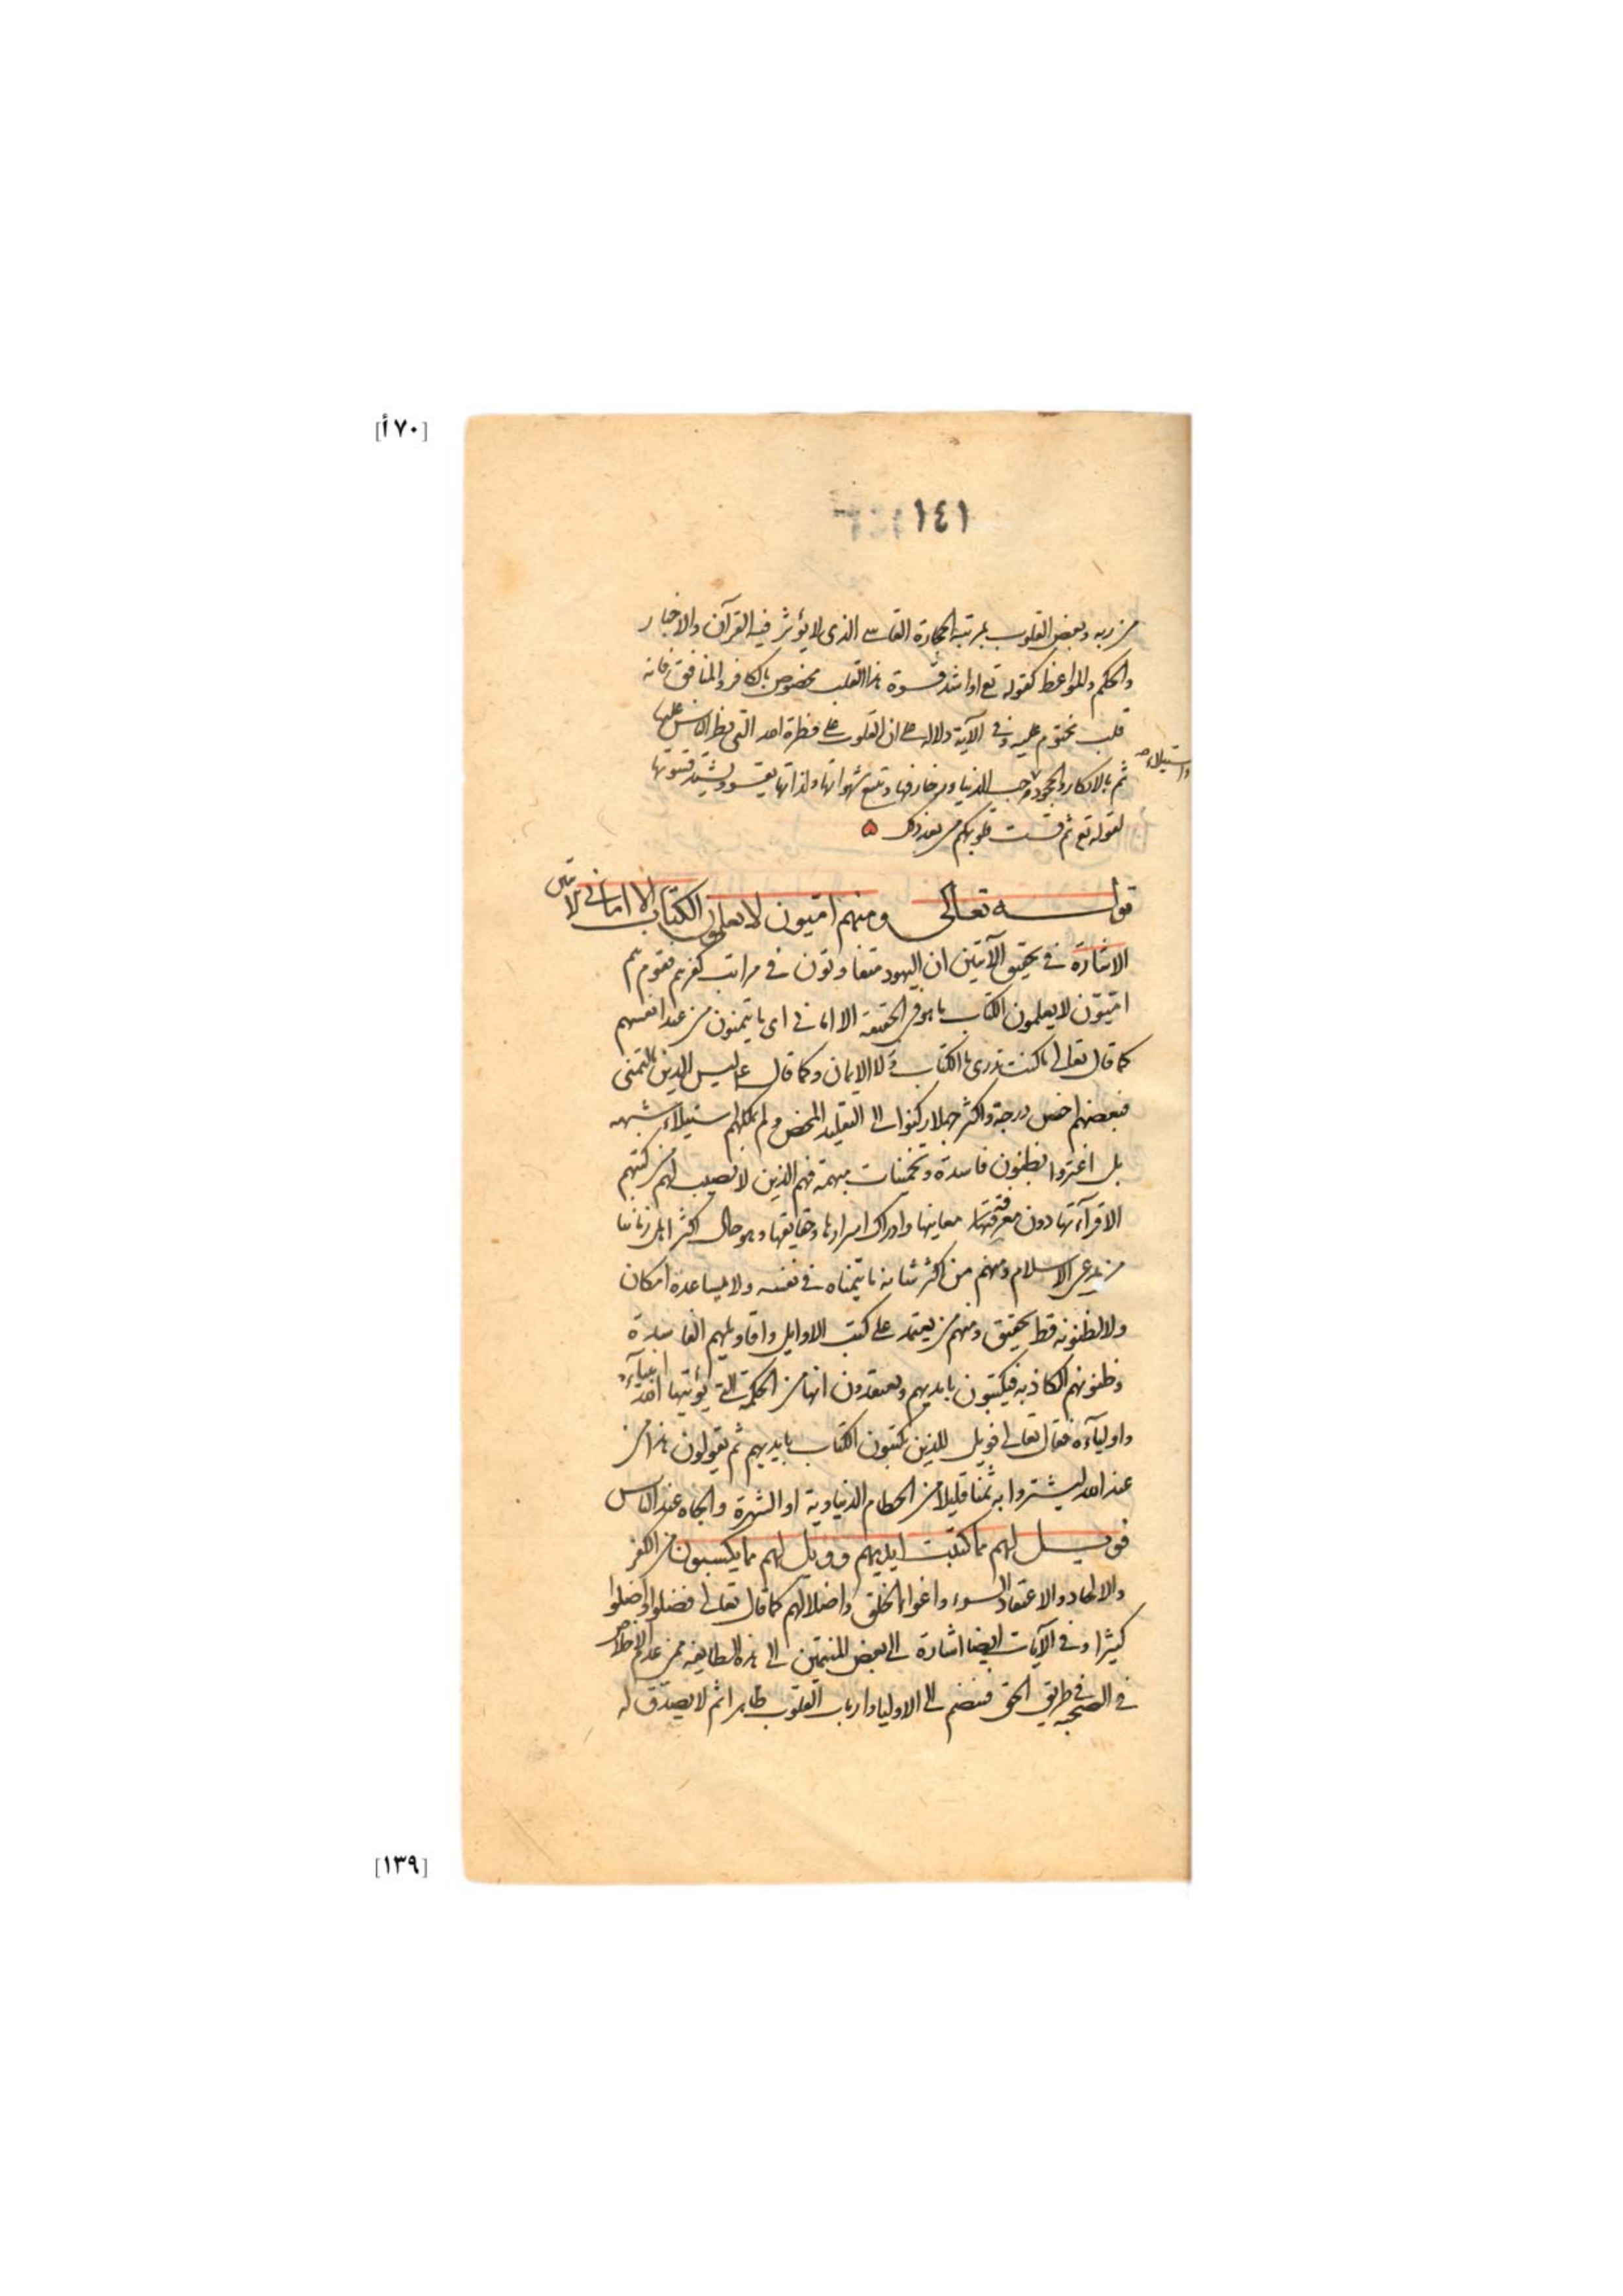 [٧٠أ]
١٤١
من ربه وبعض القلوب بمرتبة الحجارة القاسى الذى لا يؤثر فيه القرآن والاخبار
والحكم والمواعظ كقوله تع او اشد قسوة هذا القلب مخصوص بالكافر والمنافق فانه
قلب مختوم عليه وفى الآية دلالة على ان القلوب على فطرة الله التى فطر الناس عليها
واستيلاء صح
ثم بالانكار والجحود حب الدنيا وزخارفها وتتبع شهواتها ولذاتها يقسو ويشتد قسوتها
لقوله تع ثم قست قلوبكم من بعد ذلك
قوله تعالى ومنهم اميون لا يعلمون الكتاب الا امانى الآيتين
الاشارة فى تحقيق الآيتين ان اليهود متفاوتون فى مراتب كفرهم فقوم هم
اميّون لا يعلمون الكتاب ما هو فى الحقيقة الا امانى اى ما يتمنون من عند انفسهم
كما قال تعالى ما كنت تدرى ما الكتاب ولا الايمان وكما قال ع ليس الدين بالتمنى
فبعضهم اخس درجة واكثر جهلا ركنوا الى التقليد المحض ولم يمكنهم استيلاء شبهه
بل اغتروا بظنون فاسدة وتخمينات مبهمة فهم الذين لا نصيب لهم من كتبهم
الا قرآءتها دون معرفتها معانيها وادراك اسرارها وحقايقها وهو حال اكثر اهل زماننا
من مدعى الاسلام ومنهم من اكثر شانه ما يتمناه فى نفسه ولا يساعده امكان
ولا لظنونه قط تحقيق ومنهم من يعتمد على كتب الاوايل واقاويلهم الفاسدة
وظنونهم الكاذبه فيكتبون بايديهم ويعتقدون انها من الحكمة التى يؤتيها الله انبيآءه
واوليآءه فقال تعالى فويل للذين يكتبون الكتاب بايديهم ثم يقولون هذا من
عند الله ليشتروا به ثمنا قليلا من الحطام الدنياوية او الشهرة والجاه عند الناس
فويل لهم مما كتبت ايديهم وويل لهم مما يكسبون من الكفر
والالحاد والاعتقاد السوء واغواء الخلق واضلالهم كما قال تعالى فضلوا واضلوا
كثيرا وفى الآيات ايضا اشارة الى بعض المنتمين الى هذه الطايفة ممن عدم الاخلاص
فى الصحبه فى طريق الحق فينضم الى الاوليا وارباب القلوب ظاهرا ثم لا يصدق له
[١٣٩]